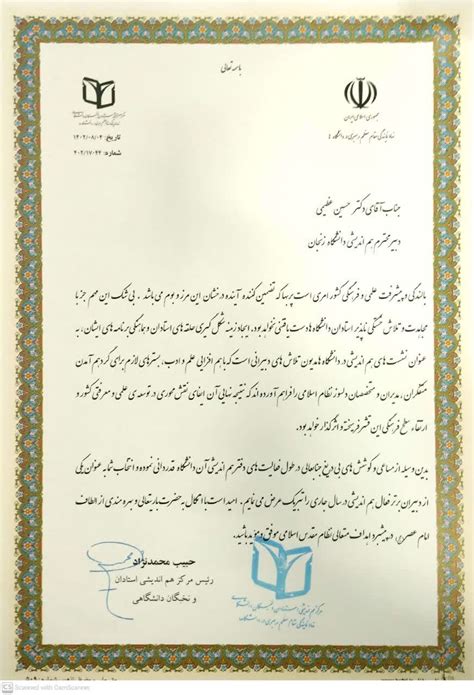 باسمه تعالی
جمهوری اسلامی ایران
نهاد نمایندگی مقام معظم رهبری در دانشگاه ها
تاریخ: ۱۴۰۲/۰۸/۰۲
شماره: ۴۰۲/۱۷۰۲۴
جناب آقای دکتر حسین عظیمی
دبیر محترم هم اندیشی دانشگاه زنجان
بالندگی و پیشرفت علمی و فرهنگی کشور امری است پربها که تضمین کننده آینده درخشان این مرز و بوم می باشد. بی شک این مهم جز با
مجاهدت و تلاش خستگی ناپذیر استادان دانشگاه ها دست یافتنی نخواهد بود. ایجاد زمینه شکل گیری حلقه های استادان و هماهنگی برنامه های ایشان، به
عنوان نشست های هم اندیشی در دانشگاه ها مدیون تلاش های دبیرانی است که با هم افزایی علم و ادب، بسترهای لازم برای گرد هم آمدن
متفکران، مدیران و متخصصان دلسوز نظام اسلامی را فراهم آورده اند که نتیجه نمایی آن ایفای نقش محوری در توسعه ی علمی و معرفتی کشور و
ارتقاء سطح فرهنگی این قشر فرهیخته و اثرگذار خواهد بود.
بدین وسیله از مساعی و کوشش های بی دریغ جنابعالی در طول فعالیت های دفتر هم اندیشی آن دانشگاه قدردانی نموده و انتخاب شما به عنوان یکی
از دبیران برتر فعال هم اندیشی در سال جاری را تبریک عرض می نمایم. امید است با اتکال به حضرت باریتعالی و بهره مندی از الطاف
امام عصر(عج)، در پیشبرد اهداف متعالی نظام مقدس اسلامی موفق و مؤید باشید.
حبیب محمدنژاد
رئیس مرکز هم اندیشی استادان
و نخبگان دانشگاهی
CS Scanned with CamScanner